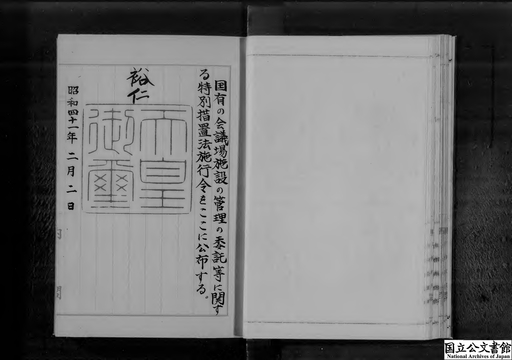 国有の会議場施設の管理の委託等に関す
る特別措置法施行令をここに公布する。
裕仁
天皇
御璽
昭和四十一年二月二日
国立公文書館
National Archives of Japan